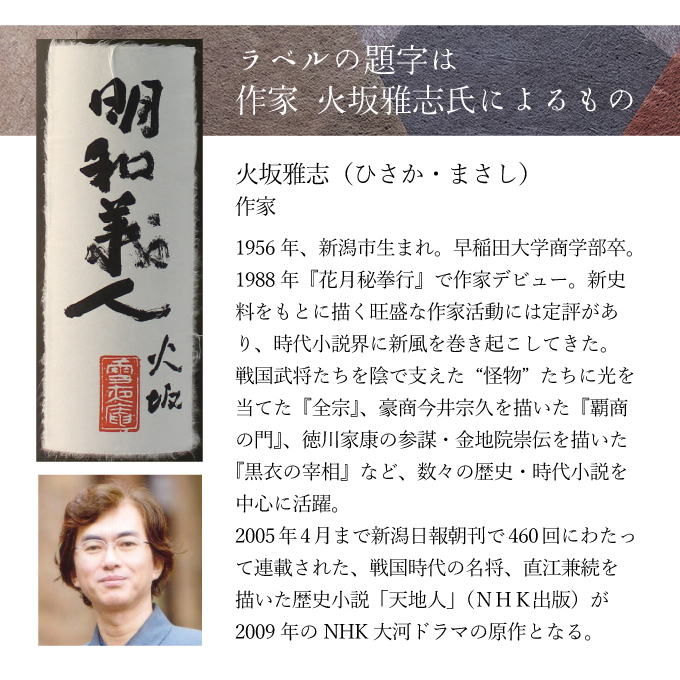 ラベルの題字は
作家 火坂雅志氏によるもの
明和義人
火坂
火坂雅志（ひさか・まさし）
作家
1956年、新潟市生まれ。早稲田大学商学部卒。
1988年『花月秘拳行』で作家デビュー。新史
料をもとに描く旺盛な作家活動には定評があ
り、時代小説界に新風を巻き起こしてきた。
戦国武将たちを陰で支えた“怪物”たちに光を
当てた『全宗』、豪商今井宗久を描いた『覇商
の門』、徳川家康の参謀・金地院崇伝を描いた
『黒衣の宰相』など、数々の歴史・時代小説を
中心に活躍。
2005年4月まで新潟日報朝刊で460回にわたっ
て連載された、戦国時代の名将、直江兼続を
描いた歴史小説「天地人」（ＮＨＫ出版）が
2009年のNHK大河ドラマの原作となる。